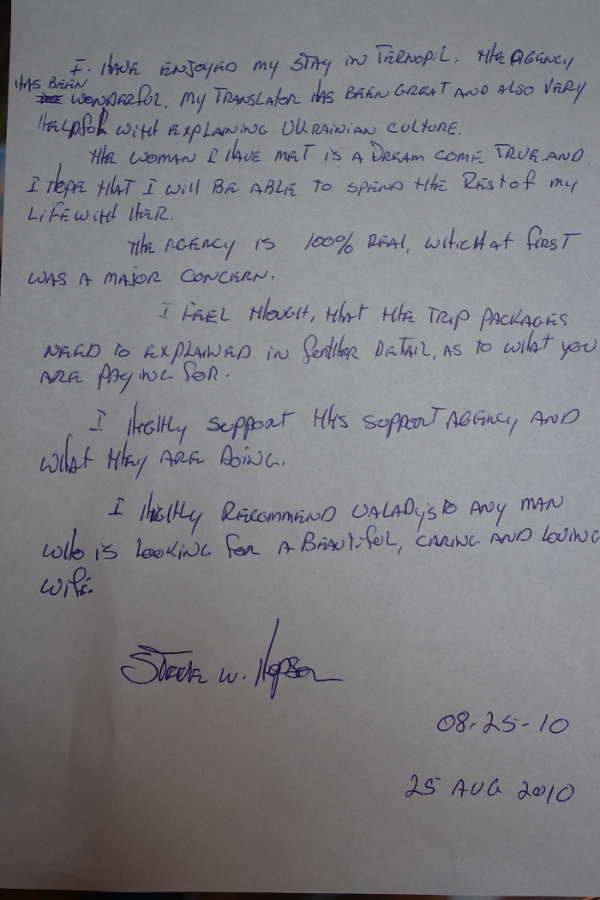 I. HAVE ENJOYED MY STAY IN TERNOPIL. THE AGENCY
HAS BEEN
WONDERFUL. MY TRANSLATOR HAS BEEN GREAT AND ALSO VERY
HELPFUL WITH EXPLAINING UKRAINIAN CULTURE.
THE WOMAN I HAVE MET IS A DREAM COME TRUE AND
I HOPE THAT I WILL BE ABLE TO SPEND THE REST OF MY
LIFE WITH HER.
THE AGENCY IS 100% REAL, WHICH AT FIRST
WAS A MAJOR CONCERN.
I FEEL THOUGH, THAT THE TRIP PACKAGES
NEED TO EXPLAINED IN FURTHER DETAIL, AS TO WHAT YOU
ARE PAYING FOR.
I HIGHLY SUPPORT THIS SUPPORT AGENCY AND
WHAT THEY ARE DOING.
I HIGHLY RECOMMEND UALADYS TO ANY MAN
WHO IS LOOKING FOR A BEAUTIFUL, CARING AND LOVING
WIFE.
W.
08-25-10
25 AUG 2010